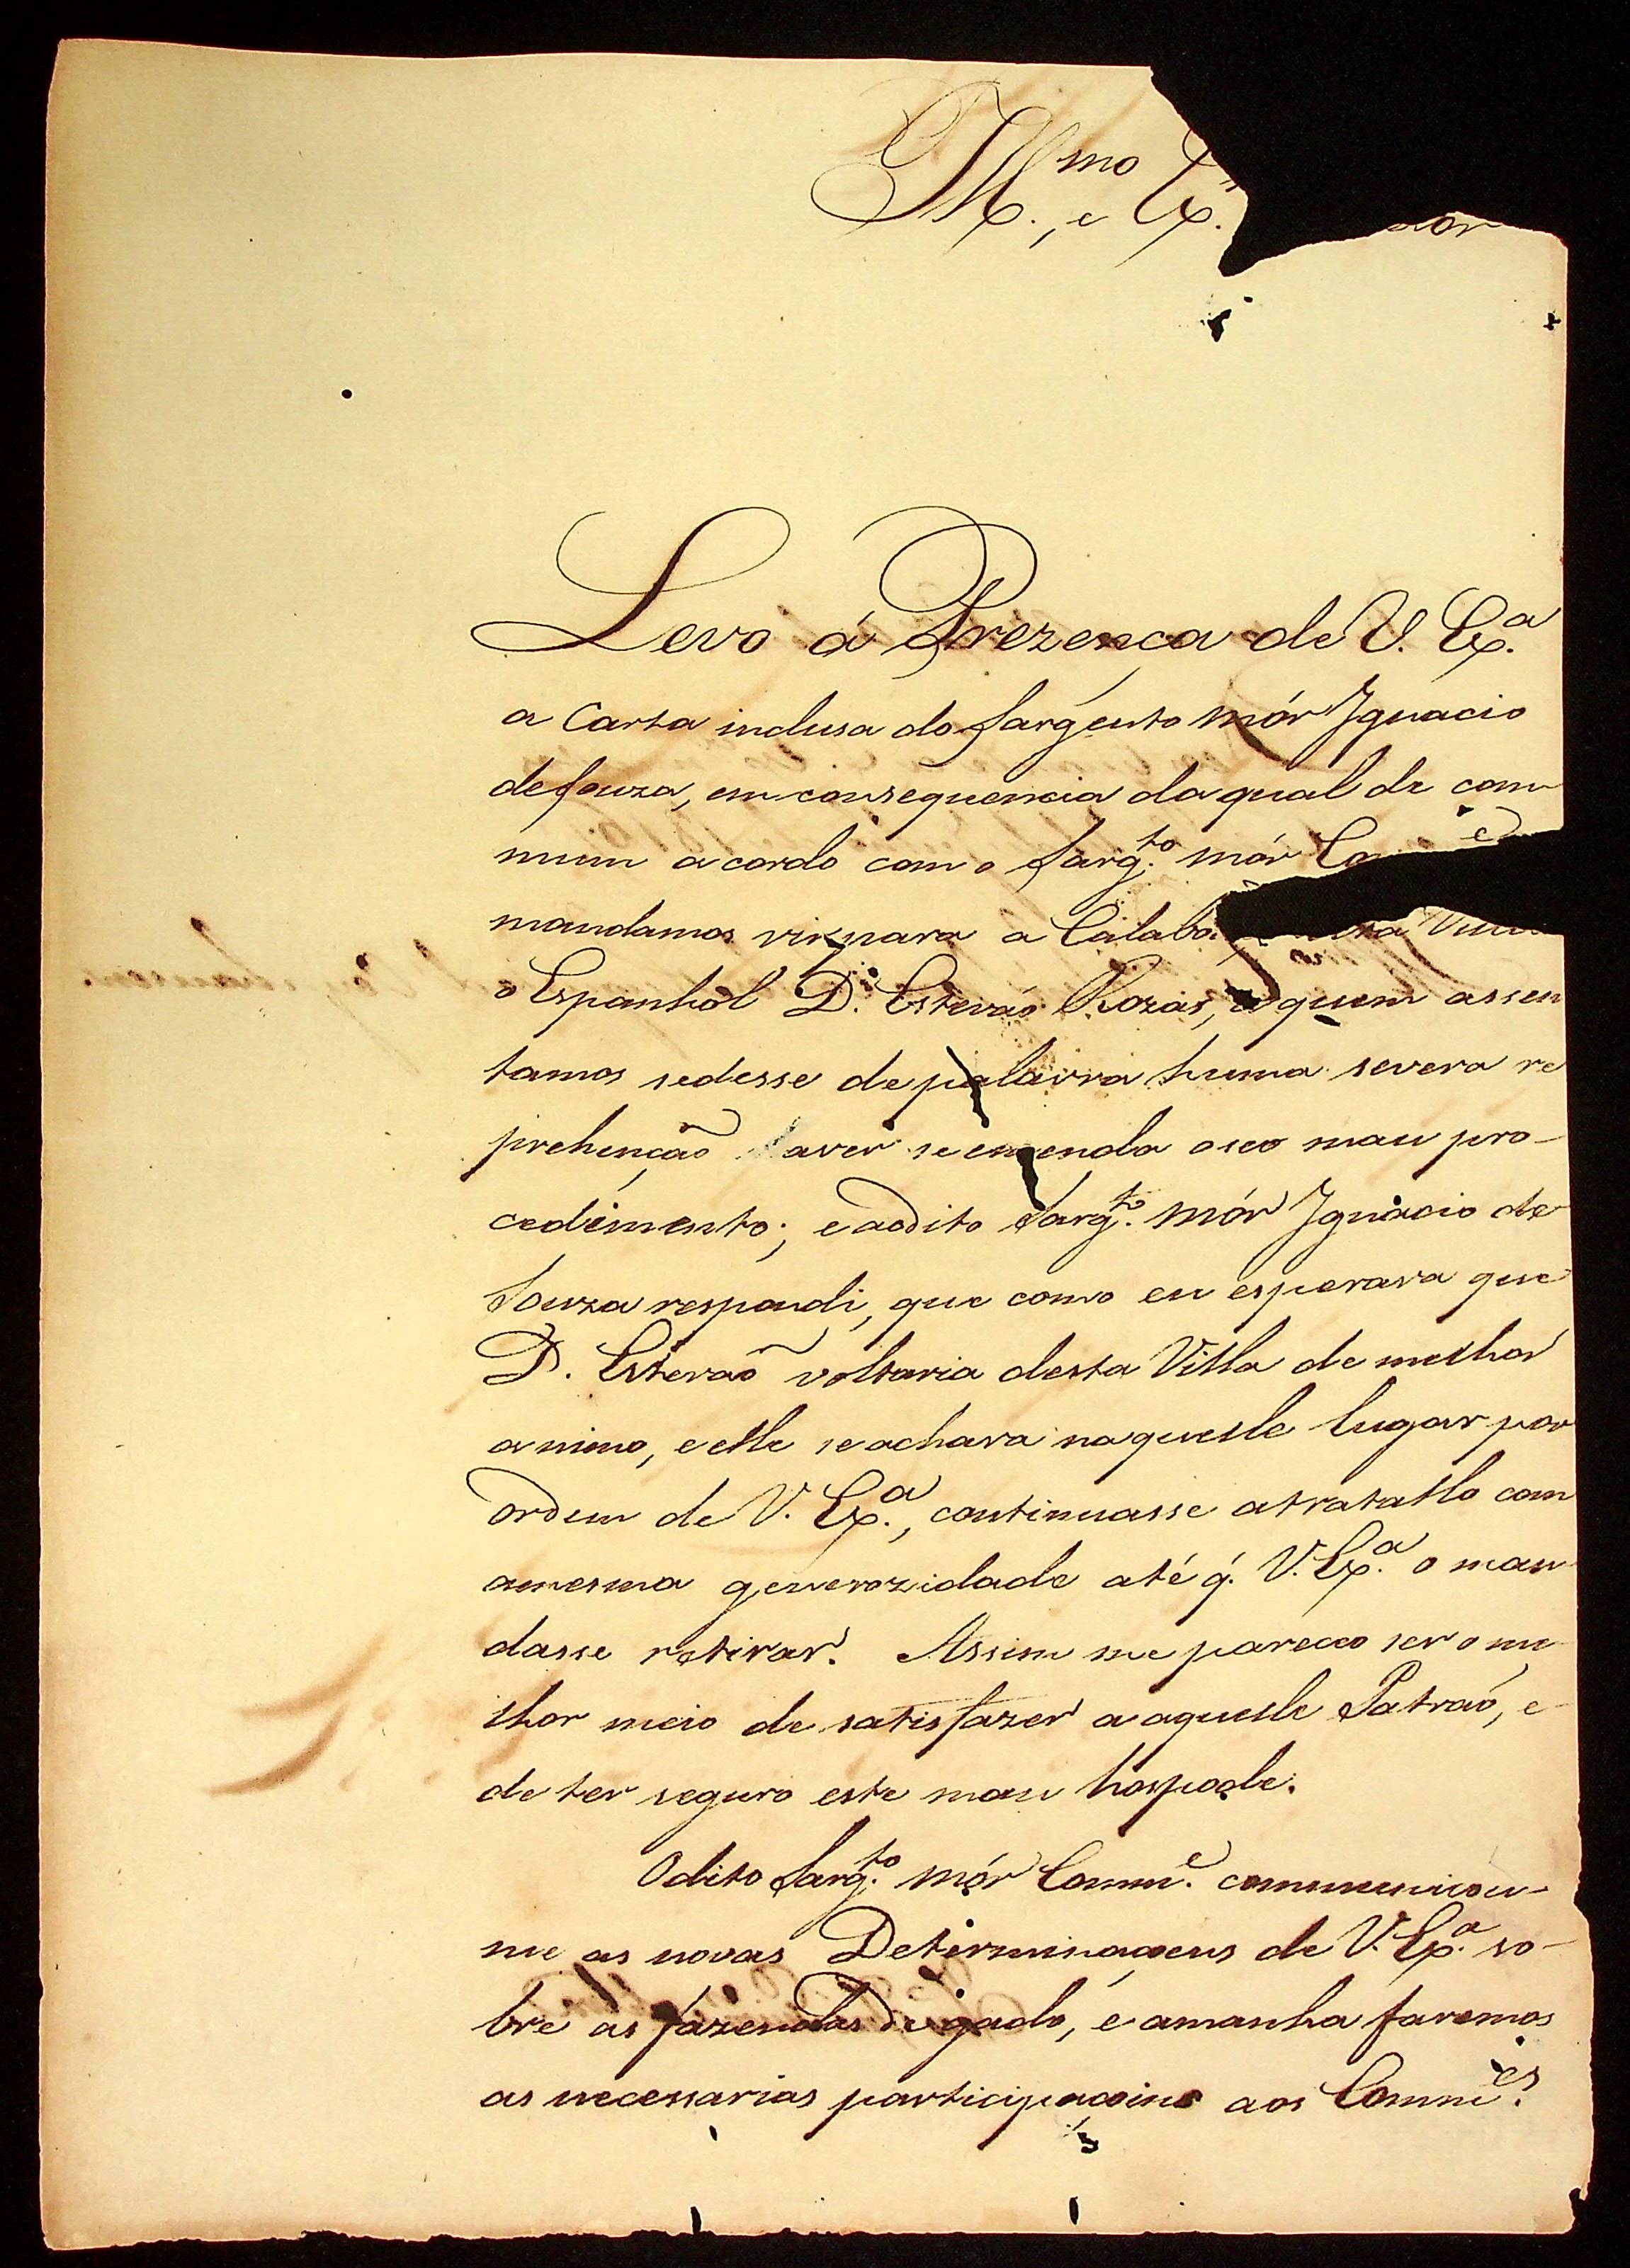 Ill.mo, e Ex.
Levo á Prezença de V. Ex.a
a Carta inclusa do Sargento mór Ignacio
de Souza, em consequencia da qual de com
mum acordo com o Sarg.to mór
mandamos vir para a
o Espanhol D. Estevão Rozas, a quem assen
tamos se desse de palavra huma severa re
prehenção a ver se emenda o seo mau pro-
cedimento; e ao dito Sarg.to mór Ignacio de
Souza respondi, que como eu esperava que
D. Estevão voltaria desta Villa de melhor
animo, e elle se achava naquelle lugar por
ordem de V. Ex.a, continuasse a tratallo com
a mesma generozidade até q. V. Ex.a o man
dasse retirar. Assim me pareceo ser o me
lhor meio de satisfazer a aquelle Patrão, e
de ter seguro este mau hospede.
O dito Sarg.to mór Comm.e communicou-
me as novas Determinaçoens de V. Ex.a so-
bre as fazendas de gado, e amanha faremos
as necessarias participaçoins aos Comm.es